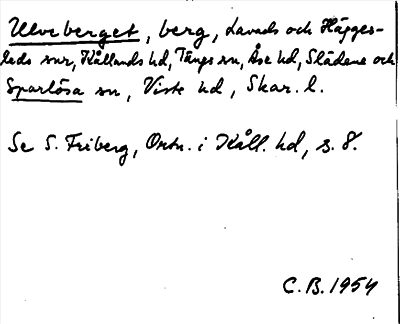 Ulveberget, berg, Lavads och Häggesleds snr, Kållands hd, Tängs sn, Åse hd, Slädene och
Sparlösa sn, Viste hd, Skar. l.
Se S. Friberg, Ortn. i Kåll. hd, s. 8.
C.B. 1954